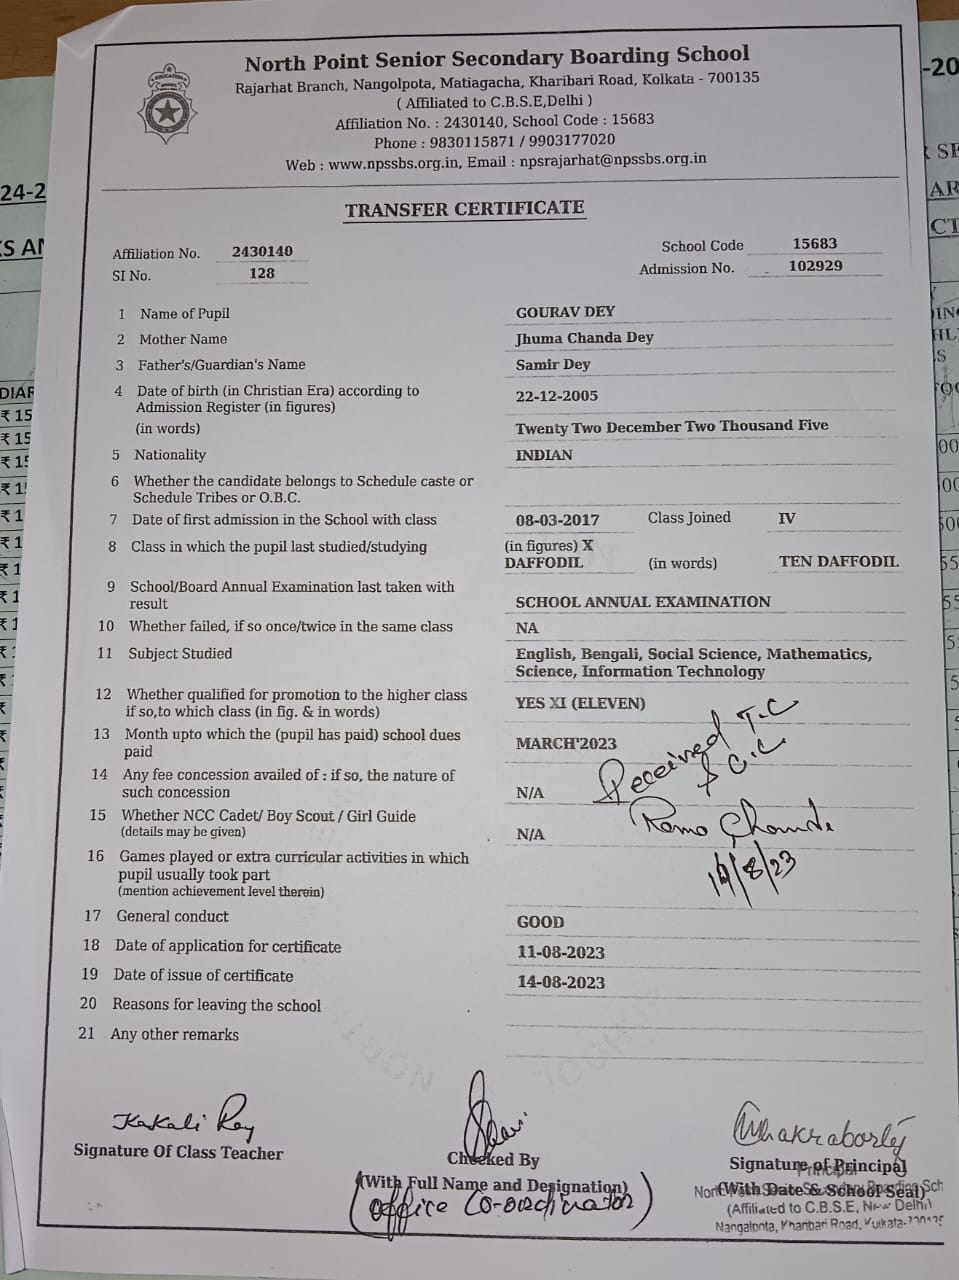 North Point Senior Secondary Boarding School
Rajarhat Branch, Nangolpota, Matiagacha, Kharibari Road, Kolkata - 700135
( Affiliated to C.B.S.E,Delhi )
Affiliation No. : 2430140, School Code : 15683
Phone : 9830115871 / 9903177020
Web : www.npssbs.org.in, Email : npsrajarhat@npssbs.org.in
TRANSFER CERTIFICATE
Affiliation No. 2430140 School Code 15683
SI No. 128 Admission No. 102929
1 Name of Pupil GOURAV DEY
2 Mother Name Jhuma Chanda Dey
3 Father's/Guardian's Name Samir Dey
4 Date of birth (in Christian Era) according to
Admission Register (in figures) 22-12-2005
(in words) Twenty Two December Two Thousand Five
5 Nationality INDIAN
6 Whether the candidate belongs to Schedule caste or
Schedule Tribes or O.B.C.
7 Date of first admission in the School with class 08-03-2017 Class Joined IV
8 Class in which the pupil last studied/studying (in figures) X
DAFFODIL (in words) TEN DAFFODIL
9 School/Board Annual Examination last taken with
result SCHOOL ANNUAL EXAMINATION
10 Whether failed, if so once/twice in the same class NA
11 Subject Studied English, Bengali, Social Science, Mathematics,
Science, Information Technology
12 Whether qualified for promotion to the higher class
if so,to which class (in fig. & in words) YES XI (ELEVEN)
13 Month upto which the (pupil has paid) school dues
paid MARCH'2023
Received T.C
& C.C
14 Any fee concession availed of : if so, the nature of
such concession N/A
15 Whether NCC Cadet/ Boy Scout / Girl Guide
(details may be given) N/A
16 Games played or extra curricular activities in which
pupil usually took part
(mention achievement level therein)
/8/23
17 General conduct GOOD
18 Date of application for certificate 11-08-2023
19 Date of issue of certificate 14-08-2023
20 Reasons for leaving the school
21 Any other remarks
Kakali Roy
Signature Of Class Teacher
Checked By
(With Full Name and Designation)
(Office Co-ordinator)
Chakraborty
Signature of Principal
Principal
(With Date & School Seal)
(Affiliated to C.B.S.E, New Delhi)
Nangalpota, Kharibari Road, Kolkata-700135